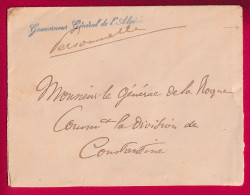 Gouverneur Général de l'Algérie
Personnelle
Monsieur le Général de la Roque
Comm^t la Division de
Constantine